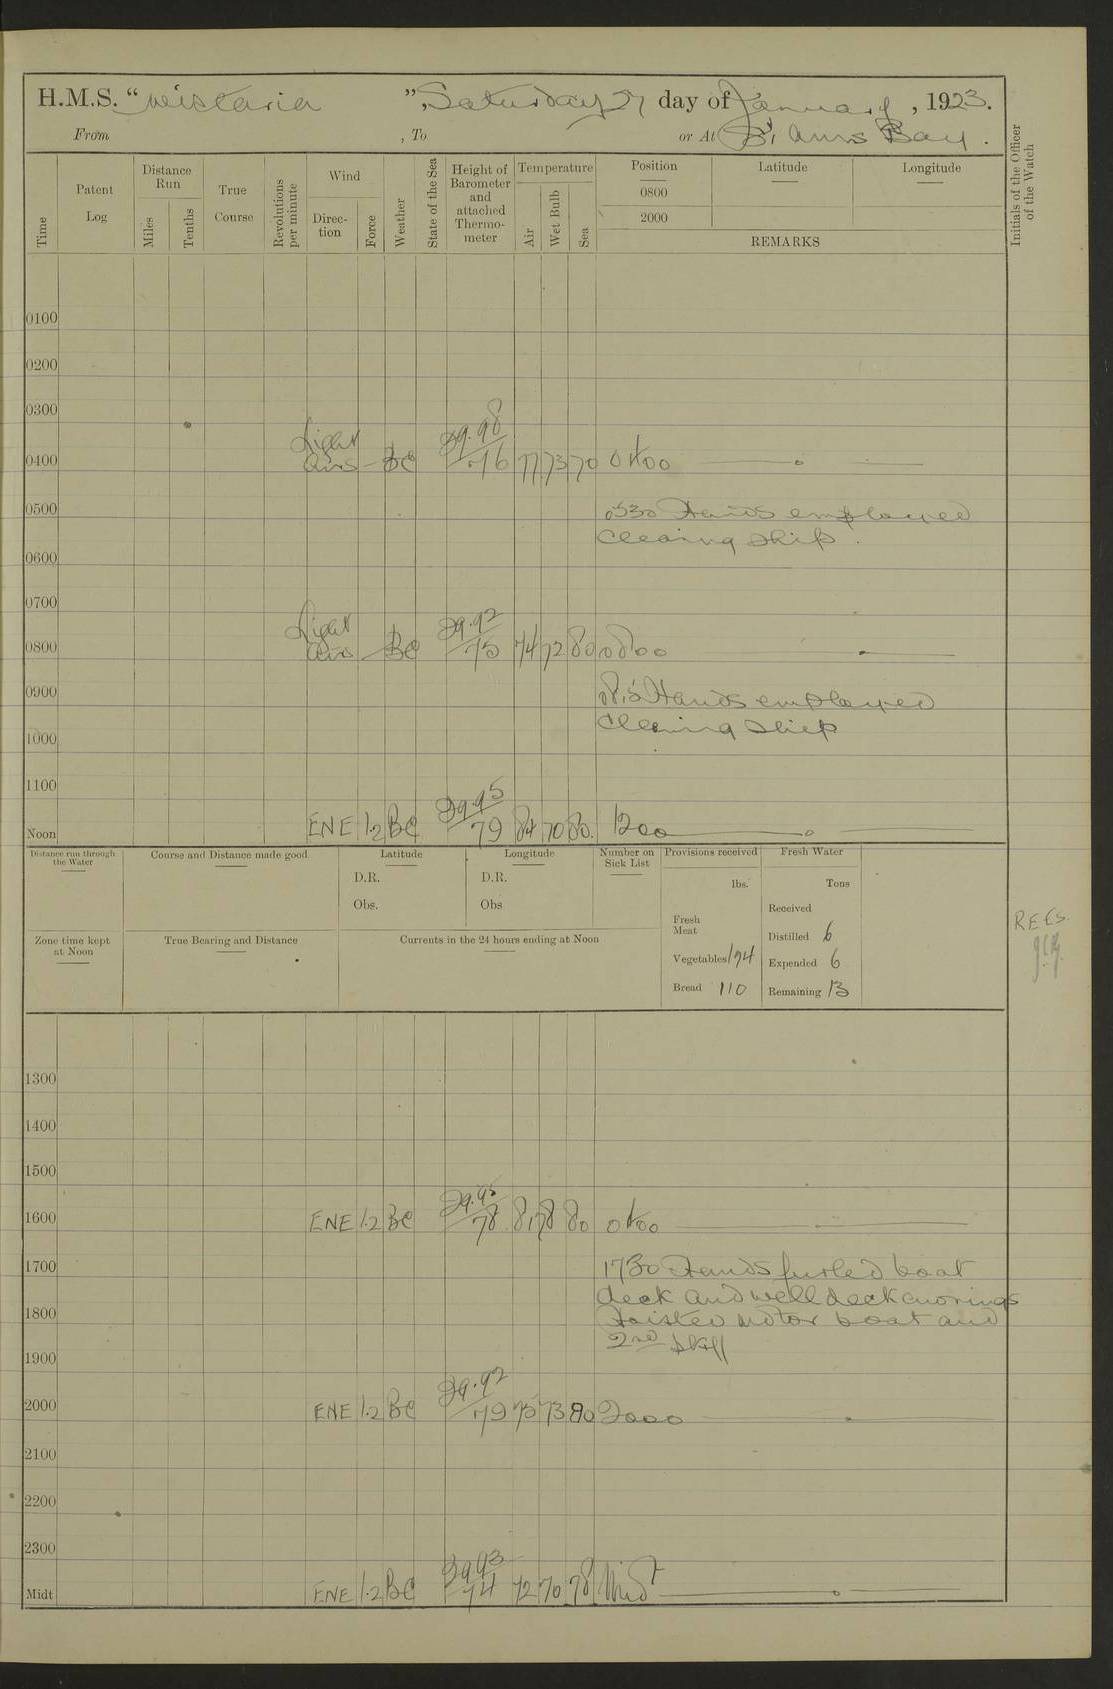 H.M.S. "Wistaria", Saturday 27 day of January, 1923.
From , To or At St Anns Bay.
Time
Patent Log
Distance Run
Miles
Tenths
True Course
Revolutions per minute
Wind
Direc- tion
Force
Weather
State of the Sea
Height of Barometer and attached Thermo- meter
Temperature
Air
Wet Bulb
Sea
Position
0800
2000
Latitude
Longitude
REMARKS
Initials of the Officer of the Watch
0100
0200
0300
0400 Light airs - BC 29.98 76 77 73 70 0400
0500 0530 Hands employed
cleaning ship.
0600
0700
0800 Light airs - BC 29.92 75 74 72 80 0800
0900 Hands employed
cleaning ship
1000
1100
Noon ENE 1.2 BC 29.95 79 84 70 80. 1200
Distance run through the Water
Course and Distance made good
Latitude
D.R.
Obs.
Longitude
D.R.
Obs
Number on Sick List
Provisions received
lbs.
Fresh Meat
Vegetables 194
Bread 110
Fresh Water
Tons
Received
Distilled 6
Expended 6
Remaining 13
Zone time kept at Noon
True Bearing and Distance
Currents in the 24 hours ending at Noon
R.E.E.S.
1300
1400
1500
1600 ENE 1.2 BC 29.95 78 81 78 80
1700 1730 Hands furled boat
deck and well deck awnings
1800 Hoisted motor boat and
2nd skiff
1900
2000 ENE 1.2 BC 29.92 79 75 73 80 2000
2100
2200
2300
Midt ENE 1.2 BC 29.93 74 72 70 78 Midt